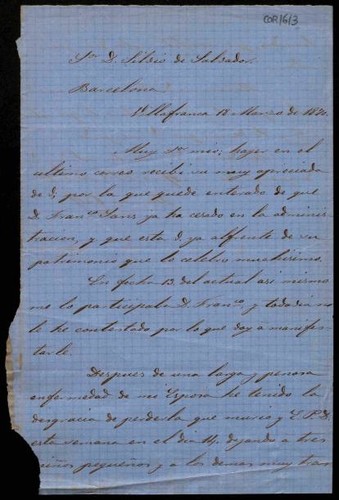 COR/6/3
Sr. D. Silvio de Salvador
Barcelona
Vilafranca 18 Marzo de
Muy Sr. mio; hayer en el
ultimo correo recibí su muy apreciada
de d, por la que quede enterado de que
D. Franco. Sans ya ha cesado en la adminis
tracion, y que esta d. ya alfrente de su
patrimonio que lo celebro muchisimo.
En fecha 13 del actual asi mismo
me lo participaba D. Franco. y todavia no
le he contestado por lo que doy a manifes
tarle.
Despues de una larga y penosa
enfermedad de mi Esposa he tenido la
desgracia de perderla que murio E.P.D.
esta semana en el dia 14, dejando a tres
niños pequeños y a los demas muy tras